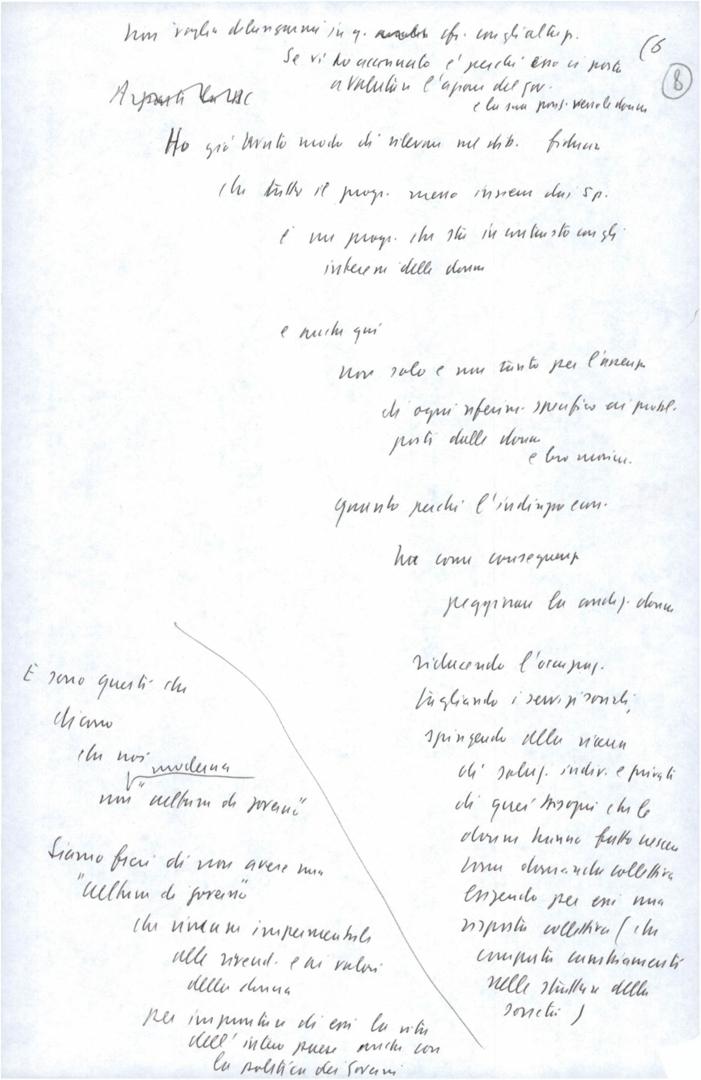 non voglio dilungarmi in q. cfr. con gli altri p.
(6
8
Se vi ho accennato è perché esso ci porta
a valutare l'azione del gov.
e la sua posiz. verso le donne
Ho già avuto modo di rilevare nel dib. fiducia
che tutto il progr. messo insieme dai 5 p.
è un progr. che sta in contrasto con gli
interessi delle donne
e anche qui
non solo e non tanto per l'assenza
di ogni riferim. specifico ai probl.
posti dalle donne
e loro movim.
quanto perché l'indirizzo econ.
ha come conseguenza
peggiorare la condiz. donne
riducendo l'occupaz.
tagliando i servizi sociali,
spingendo alla ricerca
di soluz. indiv. e privati
di quei bisogni che le
donne hanno fatto crescere
come domande collettiva
esigendo per essi una
risposta collettiva (che
comporta cambiamenti
nelle strutture della
società)
E sono questi che
dicono
che noi
moderna
non "cultura di governo"
Siamo fieri di non avere una
"cultura di governo"
che rimane impermeabile
alle rivend. e ai valori
della donna
per improntare di essi la vita
dell'intero paese anche con
la politica dei governi